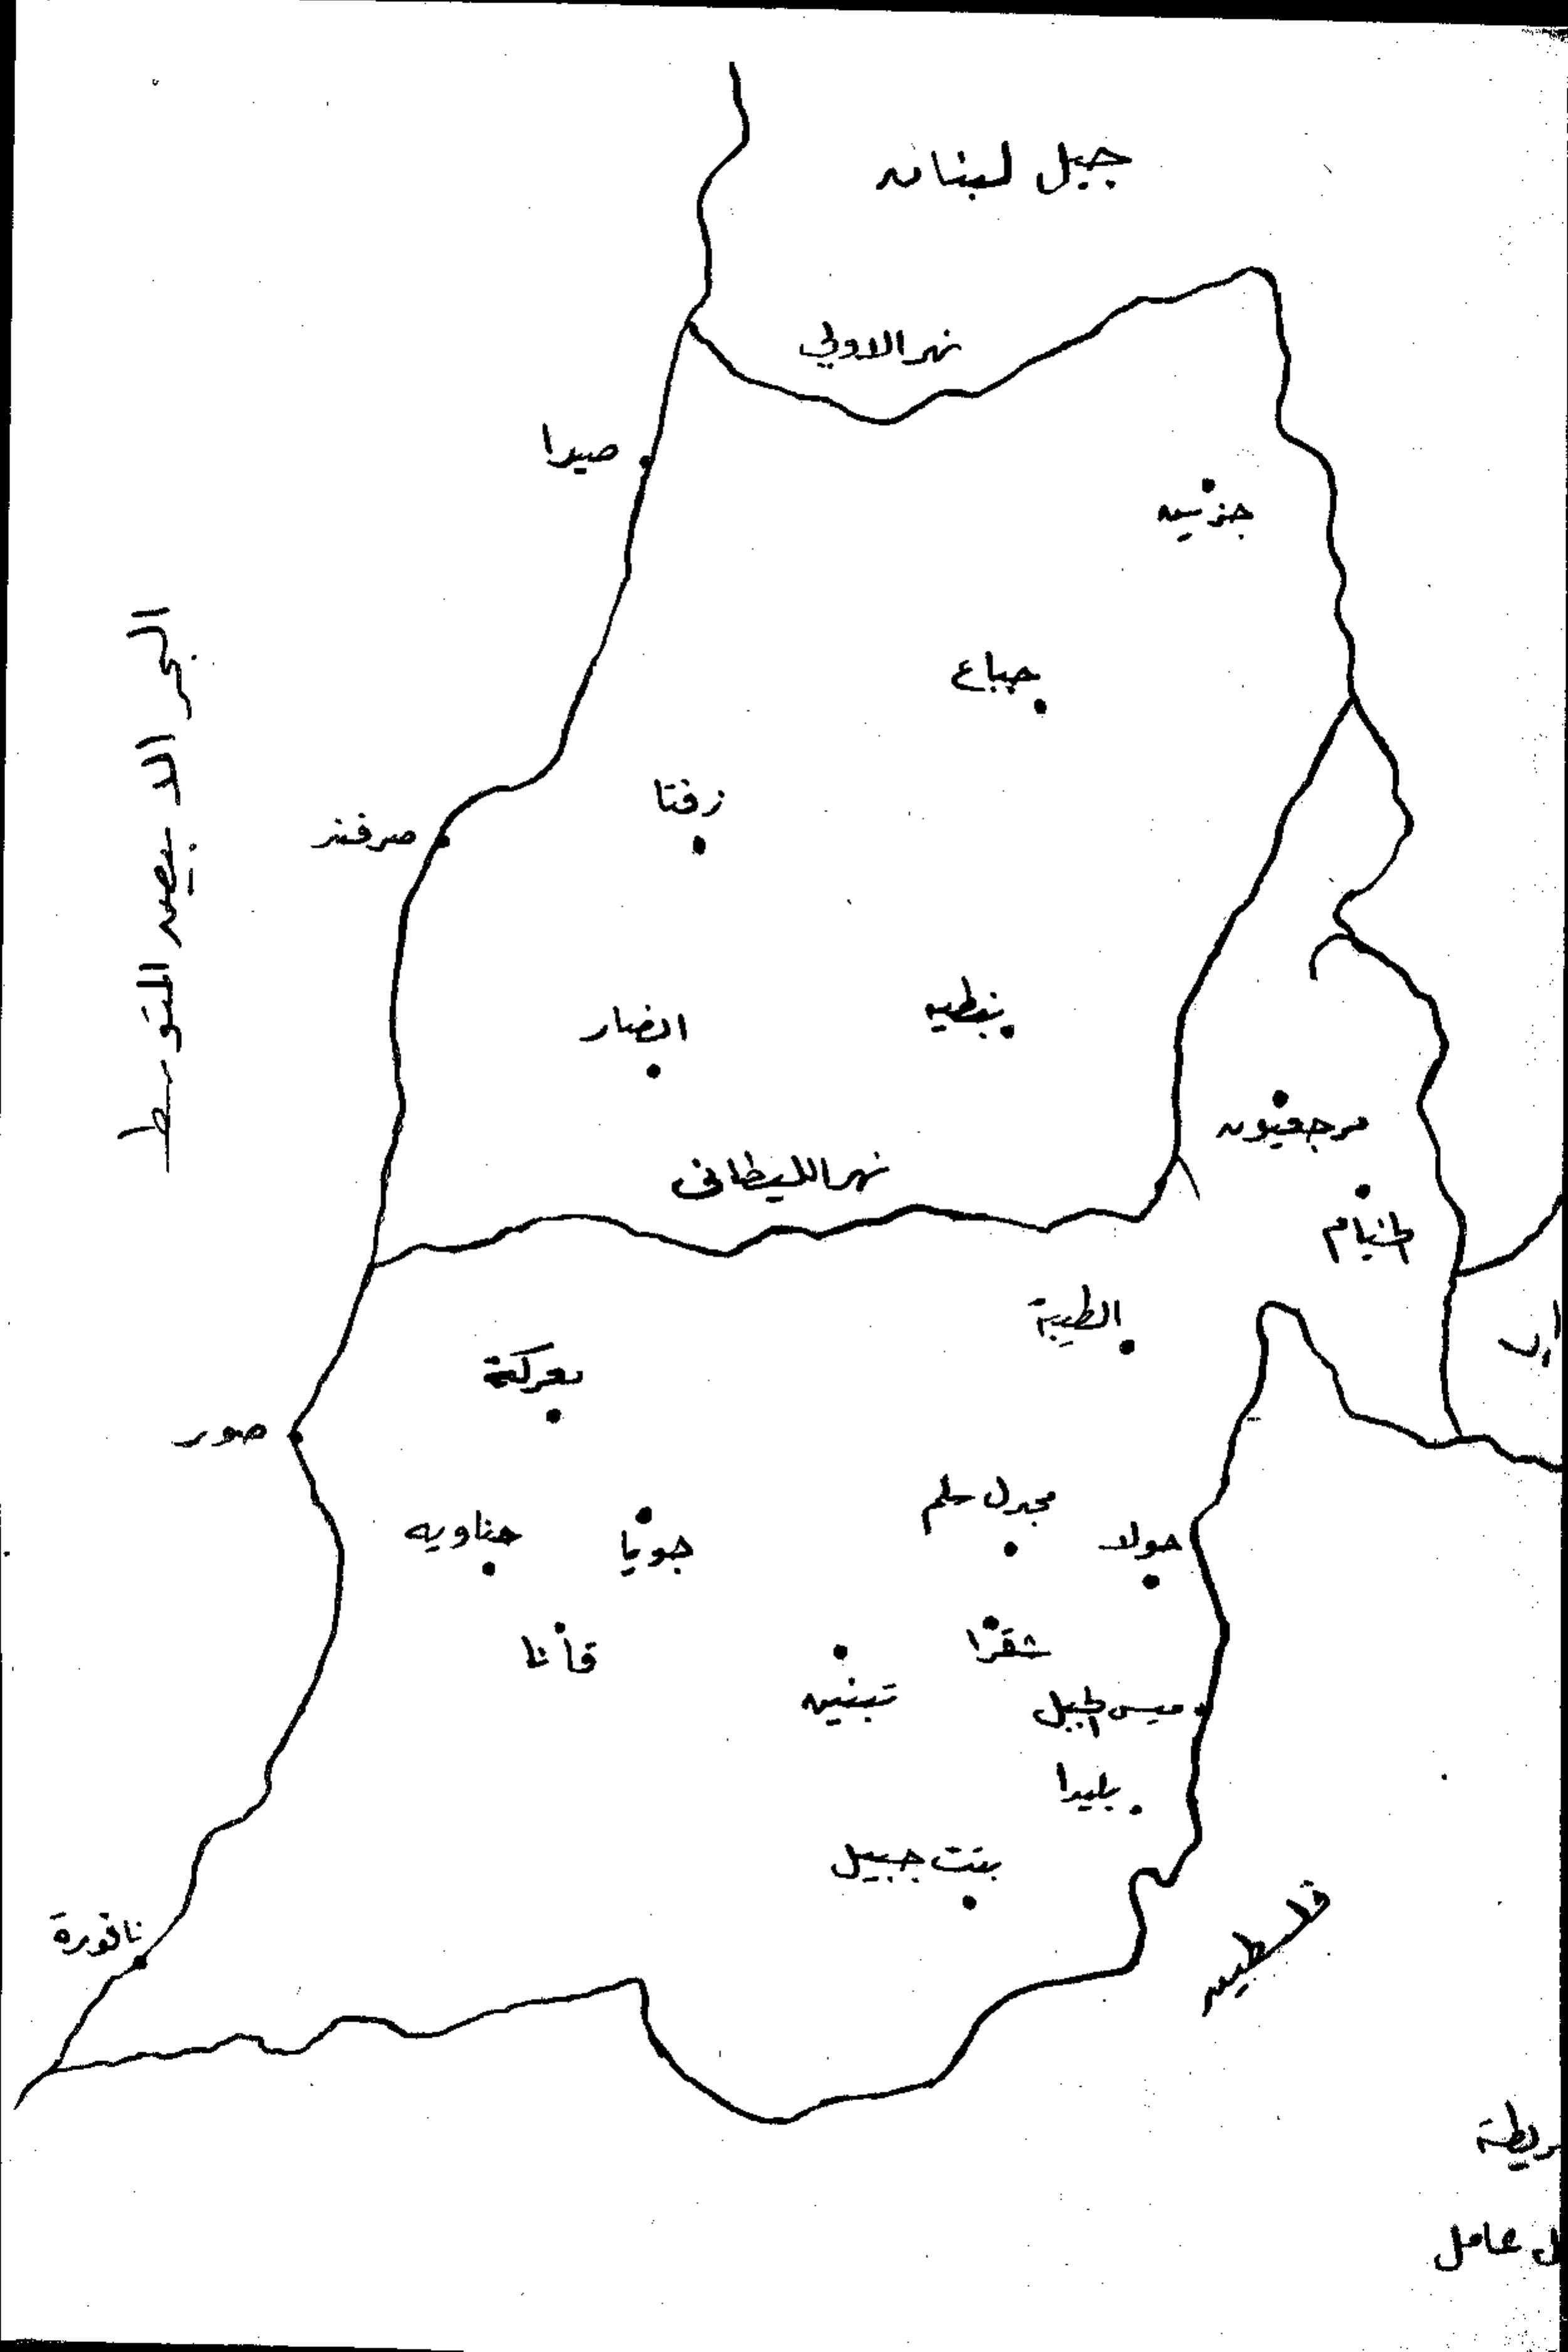 جبل لبنان
نهر الاولي
صيدا
جزين
جباع
زفتا
صرفند
البحر الابيض المتوسط
انصار
نبطيه
مرجعيون
نهر الليطاني
الخيام
الطيبة
معركة
صور
مجدل سلم
حولا
جناويه
جويا
قانا
شقرا
تبنين
ميس الجبل
بليدا
بنت جبيل
ناقورة
فلسطين
ريطة
ل عامل